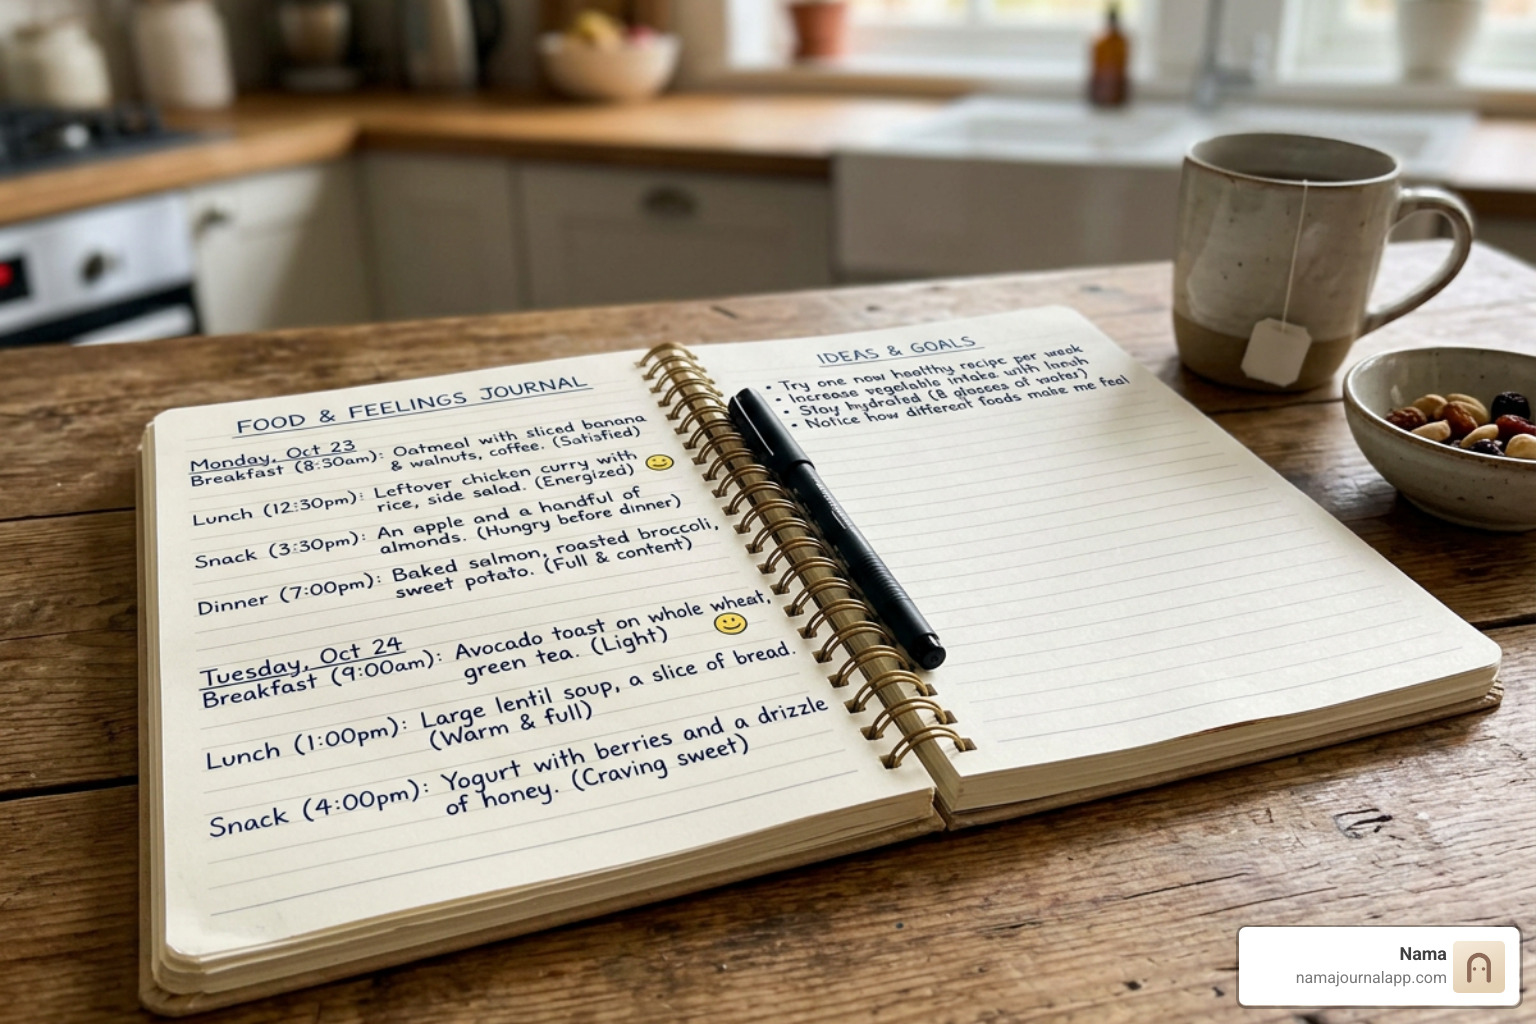 FOOD & FEELINGS JOURNAL
Monday, Oct 23
Breakfast (8:30am): Oatmeal with sliced banana
& walnuts, coffee. (Satisfied)
Lunch (12:30pm): Leftover chicken curry with
rice, side salad. (Energized)
Snack (3:30pm): An apple and a handful of
almonds. (Hungry before dinner)
Dinner (7:00pm): Baked salmon, roasted broccoli,
sweet potato. (Full & content)
Tuesday, Oct 24
Breakfast (9:00am): Avocado toast on whole wheat,
green tea. (Light)
Lunch (1:00pm): Large lentil soup, a slice of bread.
(Warm & full)
Snack (4:00pm): Yogurt with berries and a drizzle
of honey. (Craving sweet)
IDEAS & GOALS
• Try one now healthy recipe per week
• Increase vegetable intake with lunch
• Stay hydrated (8 glasses of water)
• Notice how different foods make me feel
Nama
namajournalapp.com